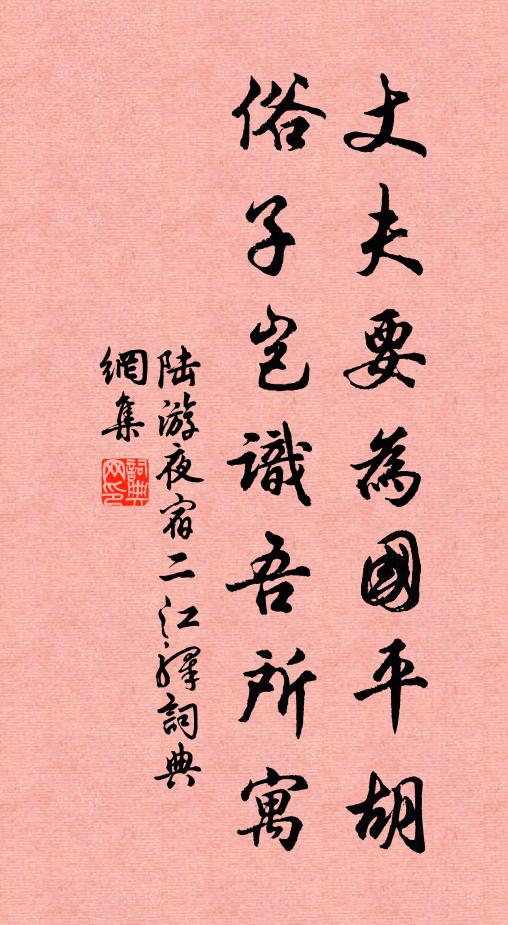 丈夫要為國平胡
俗子豈識吾所寓
陆游夜宿二江驛詞典
網集
詞典
网印